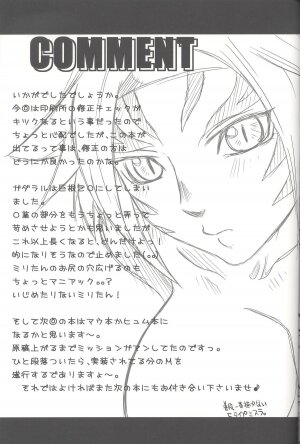 COMMENT
いかがでしたでしょうか。
今回は印刷所の修正チェックが
キツくなるという事だったので
ちょっと心配でしたが、この本が
出てるって事は、修正の方は
どうにか良かったのかな。
ガダラルは巨根
にしてしまい
ました。
の部分をもうちょっと弄って
苛めさせようとかも思いましたが
これ以上長くなると、どんだけよっ!
的になりそうなので止めました(oo)
ミリたんのお尻の穴広げるのも
ちょっとマニアックoo?
いじめたりないミリたん!
そして次回の本はマウ本かヒュム本に
なるかと思います~。
原稿上がるまでミッションガマンしてたのですっ。
ひと段落ついたら、実装されてる分のMを
遂行するでありますょ~
それではよければまた次の本にもお付き合い下さいませ♪